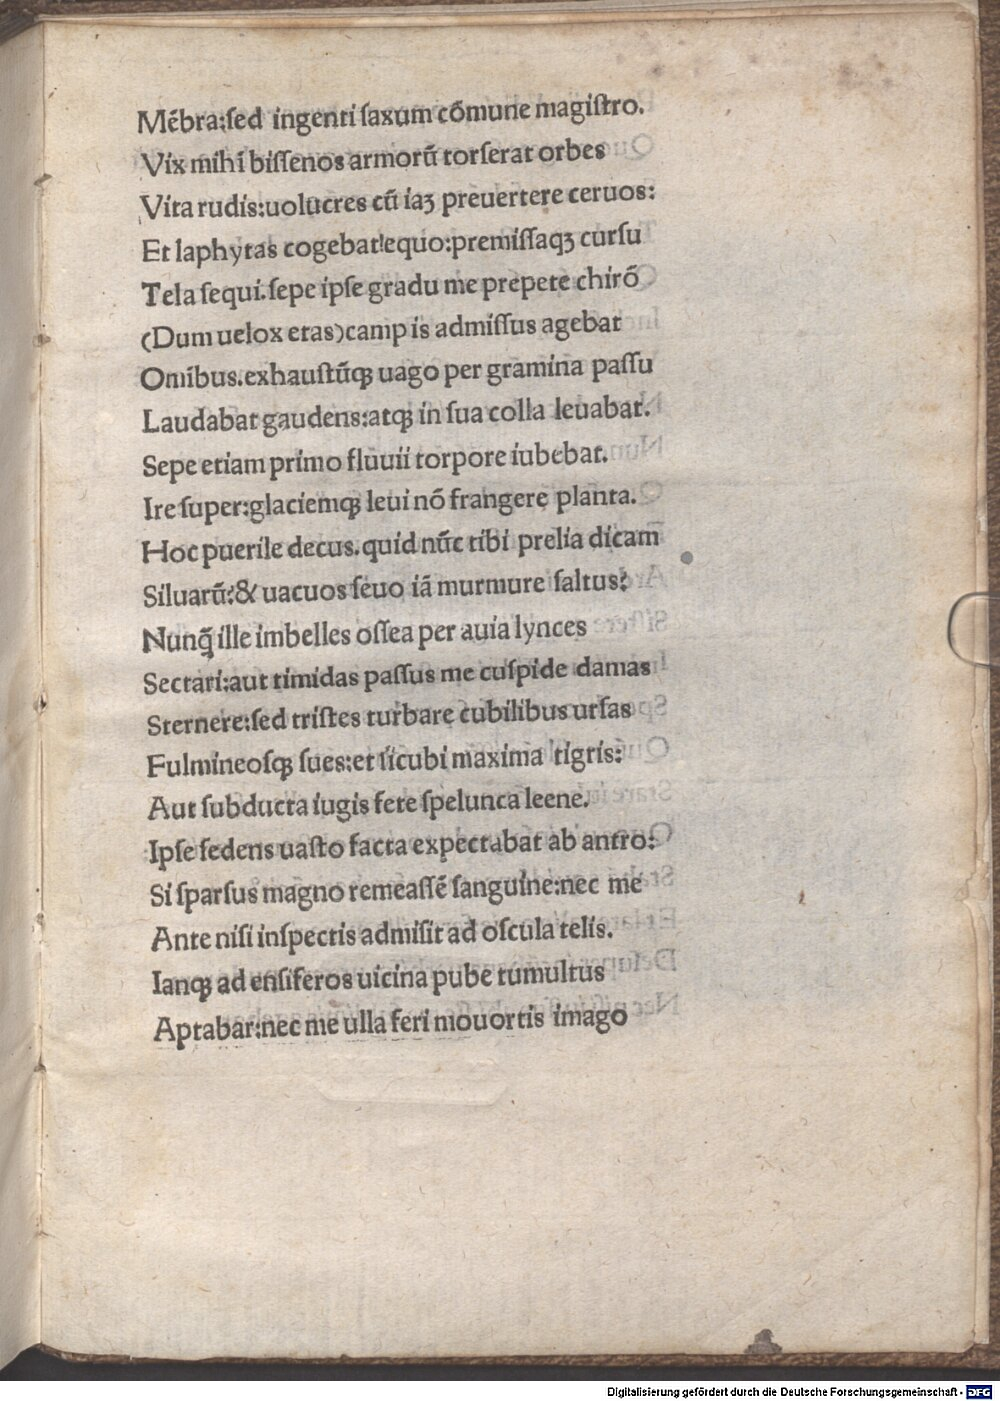 Mēbra:ſed ingenti ſaxum cōmune magiſtro.
Vix mihi biſſenos armorū torſerat orbes
Vita rudis:uolucres cū iaꝫ preuertere ceruos:
Et laphytas cogebat equo:premiſſaqꝫ curſu
Tela ſequi.ſepe ipſe gradu me prepete chirō
(Dum uelox etas)campis admiſſus agebat
Omibus.exhauſtūqꝫ uago per gramina paſſu
Laudabat gaudens:atqꝫ in ſua colla leuabat.
Sepe etiam primo fluuii torpore iubebat.
Ire ſuper:glaciemqꝫ leui nō frangere planta.
Hoc puerile decus.quid nūc tibi prelia dicam
Siluarū?& uacuos ſeuo iā murmure ſaltus?
Nunq̄ ille imbelles oſſea per auia lynces
Sectari:aut timidas paſſus me cuſpide damas
Sternere:ſed triſtes turbare cubilibus urſas
Fulmineoſqꝫ ſues:et ſicubi maxima tigris:
Aut ſubducta iugis fete ſpelunca leene.
Ipſe ſedens uaſto facta expectabat ab antro:
Si ſparſus magno remeaſſē ſanguine:nec me
Ante niſi inſpectis admiſit ad oſcula telis.
Ianqꝫ ad enſiferos uicina pube tumultus
Aptabar:nec me ulla feri mouortis imago
Digitalisierung gefördert durch die Deutsche Forschungsgemeinschaft - DFG